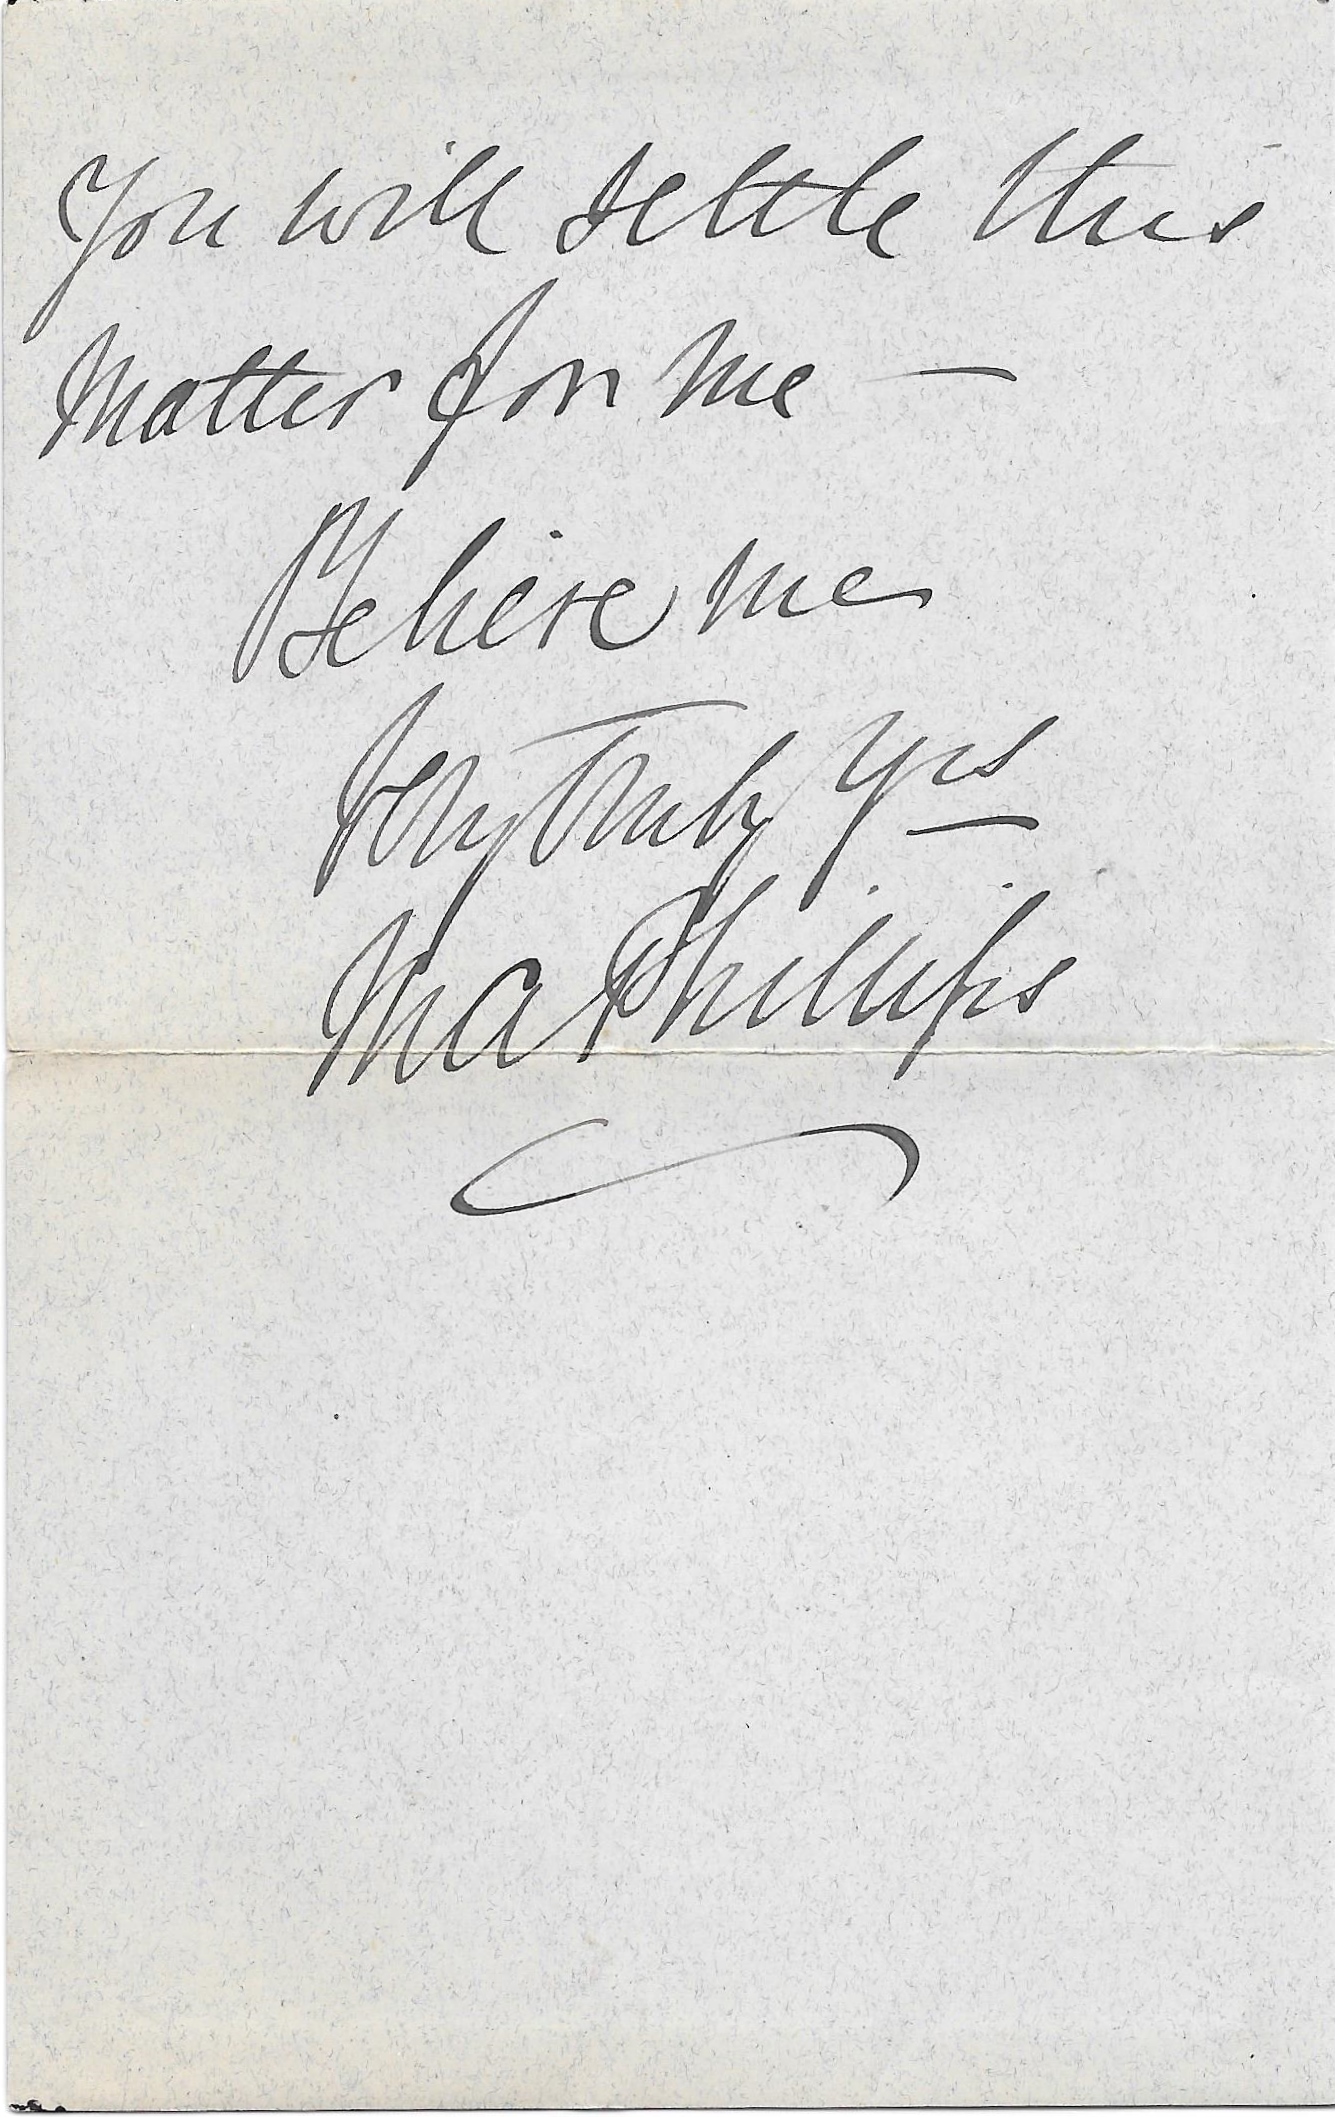 You will settle this
matter for me —
Believe me
Very Truly Yrs
M A Phillips